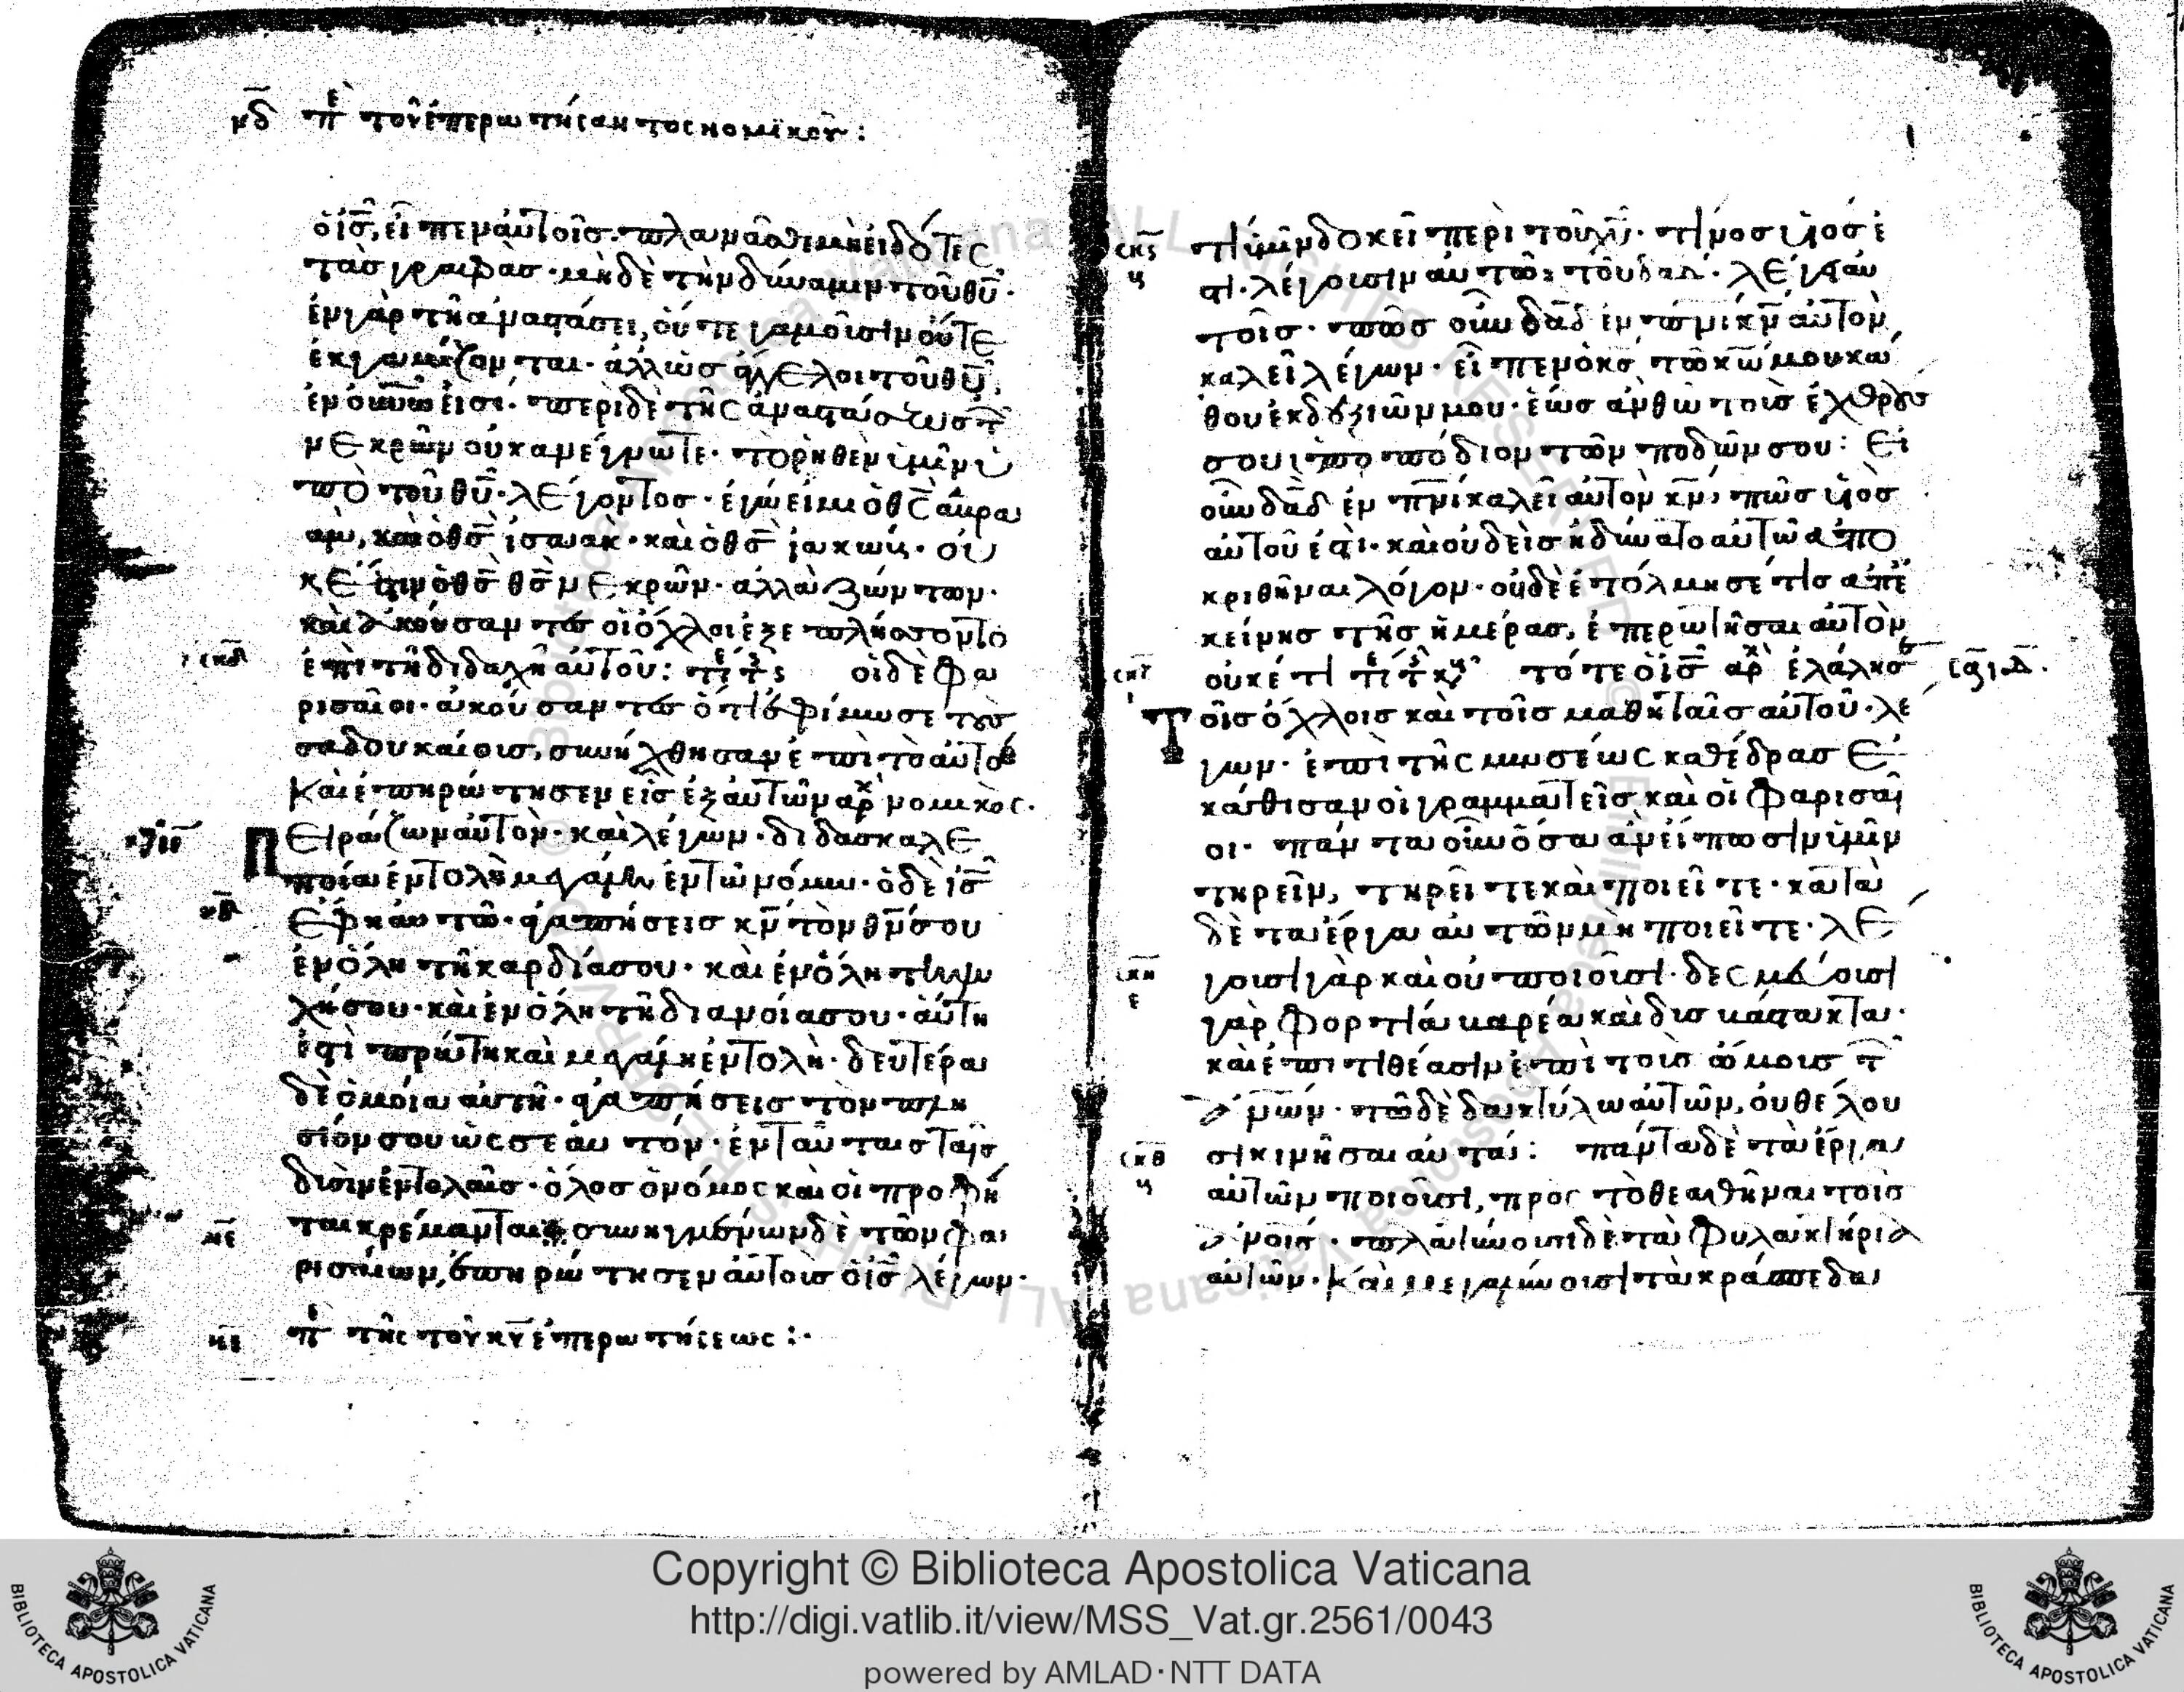 μδ πε τοῦ ἐπερωτήσαντος νομικοῦ :
ὁ ις̅, εἶπεν αὐτοῖς· πλανᾶσθε μὴ εἰδότες
τὰς γραφάς· μὴ δὲ τὴν δύναμιν τοῦ θυ̅·
ἐν γὰρ τῆ ἀναστάσει, οὔτε γαμοῦσιν οὔτε
ἐκγαμίζονται· ἀλλ' ὡς ἄγγελοι τοῦ θυ̅
ἐν οὐνω̅ εἰσί· περὶ δὲ τῆς ἀναστάσεως τ
νεκρῶν οὐκ ἀνέγνωτε· τὸ ῥηθὲν ὑμῖν ὑ
πὸ τοῦ θυ̅· λέγοντος· ἐγώ εἰμι ὁ θς̅ ἀβρα
ὰμ, καὶ ὁ θς̅ ἰσαὰκ· καὶ ὁ θς̅ ἰακώβ· οὐ
κ ἔστιν ὁ θς̅ θς̅ νεκρῶν· ἀλλὰ ζώντων·
καὶ ἀκούσαντες οἱ ὄχλοι ἐξεπλήσσοντο
σκδ ἐπὶ τῆ διδαχῆ αὐτοῦ: οἱ δὲ φα
ρισαῖοι· ἀκούσαντες ὅτι ἐφίμωσε τοὺς
σαδουκαίους, συνήχθησαν ἐπὶ τὸ αὐτό
Καὶ ἐπηρώτησεν εἷς ἐξ αὐτῶν αρχ νομικός·
Πειράζων αὐτὸν· καὶ λέγων· διδάσκαλε
ποία ἐντολὴ μεγάλη ἐν τῶ νόμω· ὁ δὲ ις̅
ἔφη αὐτῶ· ἀγαπήσεις κν̅ τὸν θν̅ σου
ἐν ὅλη τῆ καρδία σου· καὶ ἐν ὅλη τῆ ψυ
χῆ σου· καὶ ἐν ὅλη τῆ διανοία σου· αὕτη
ἐστὶ πρώτη καὶ μεγάλη ἐντολή· δευτέρα
δὲ ὁμοία αὐτῆ· ἀγαπήσεις τὸν πλη
σίον σου ὡς σεαυτόν· ἐν ταύταις ταῖς
δυσὶν ἐντολαῖς· ὅλος ὁ νόμος καὶ οἱ προφῆ
με ται κρέμανται· συνηγμένων δὲ τῶν φα
ρισαίων, ἐπηρώτησεν αὐτοὺς ὁ ις̅ λέγων·
με πε τῆς τοῦ κυ̅ ἐπερωτήσεως :·
σκς τί ὑμῖν δοκεῖ περὶ τοῦ χυ̅· τίνος υἱός ἐ
στι· λέγουσιν αὐτῶ· τοῦ δαδ· λέγει αὐ
τοῖς· πῶς οὖν δαδ ἐν πνι κν̅ αὐτὸν
καλεῖ λέγων· εἶπεν ὁ κς̅ τῶ κω̅ μου κά
θου ἐκ δεξιῶν μου· ἕως ἂν θῶ τοὺς ἐχθρούς
σου ὑποπόδιον τῶν ποδῶν σου: Εἰ
οὖν δαδ ἐν πνι καλεῖ αὐτὸν κν̅, πῶς υἱὸς
αὐτοῦ ἐστι· καὶ οὐδεὶς ἠδύνατο αὐτῶ ἀπο
κριθῆναι λόγον· οὐδὲ ἐτόλμησέ τις ἀπ' ἐ
κείνης τῆς ἡμέρας, ἐπερωτῆσαι αὐτὸν
σκζ οὐκέτι τότε ὁ ις̅ αρχ ἐλάλησε
Τοῖς ὄχλοις καὶ τοῖς μαθηταῖς αὐτοῦ· λέ
γων· ἐπὶ τῆς μωσέως καθέδρας ἐ
κάθισαν οἱ γραμματεῖς καὶ οἱ φαρισαῖ
οι· πάντα οὖν ὅσα ἂν εἴπωσιν ὑμῖν
τηρεῖν, τηρεῖτε καὶ ποιεῖτε· κατὰ
δὲ τὰ ἔργα αὐτῶν μὴ ποιεῖτε· λέ
σκη γουσι γὰρ καὶ οὐ ποιοῦσι· δεσμεύουσι
γὰρ φορτία βαρέα καὶ δυσβάστακτα·
καὶ ἐπιτιθέασιν ἐπὶ τοὺς ὤμους τ
ανων· τῶ δὲ δακτύλω αὐτῶν, οὐ θέλου
σκθ σι κινῆσαι αὐτά: πάντα δὲ τὰ ἔργα
αὐτῶν ποιοῦσι, πρὸς τὸ θεαθῆναι τοῖς
ανοις· πλατύνουσι δὲ τὰ φυλακτήρια
αὐτῶν· Καὶ μεγαλύνουσι τὰ κράσπεδα
Copyright © Biblioteca Apostolica Vaticana
http://digi.vatlib.it/view/MSS_Vat.gr.2561/0043
powered by AMLAD·NTT DATA
BIBLIOTECA APOSTOLICA VATICANA
BIBLIOTECA APOSTOLICA VATICANA